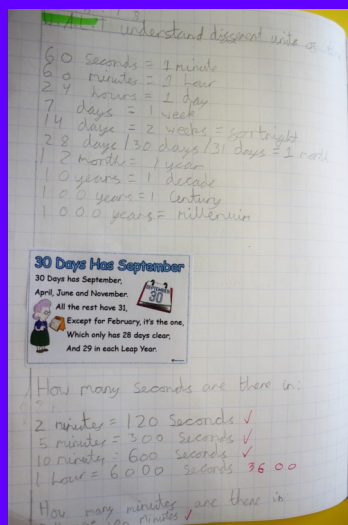 understand different units of
60 seconds = 1 minute
60 minutes = 1 hour
24 hours = 1 day
7 days = 1 week
14 days = 2 weeks = gortnight
28 days / 30 days / 31 days = 1 month
12 months = 1 year
10 years = 1 decade
100 years = 1 century
1000 years = millenuim
30 Days Has September
30 Days has September,
April, June and November.
All the rest have 31,
Except for February, it's the one,
Which only has 28 days clear,
And 29 in each Leap Year.
SEPTEMBER
30
How many seconds are there in:
2 minutes = 120 seconds ✓
5 minutes = 300 seconds ✓
10 minutes = 600 seconds ✓
1 hour = 6000 seconds 3600
How many minutes are there in
minutes ✓